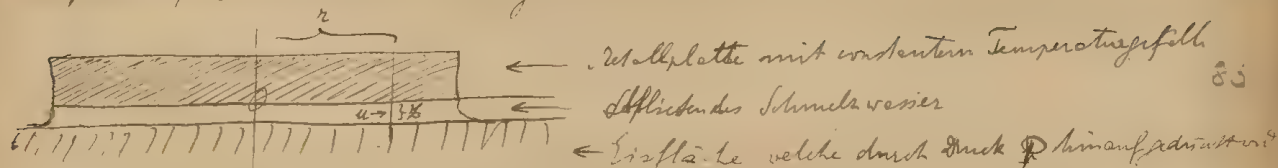 r
Metallplatte mit constantem Temperaturgefälle
Abfließendes Schmelzwasser
u → } z
Eisfläche welche durch Druck P hinaufgedrückt wird